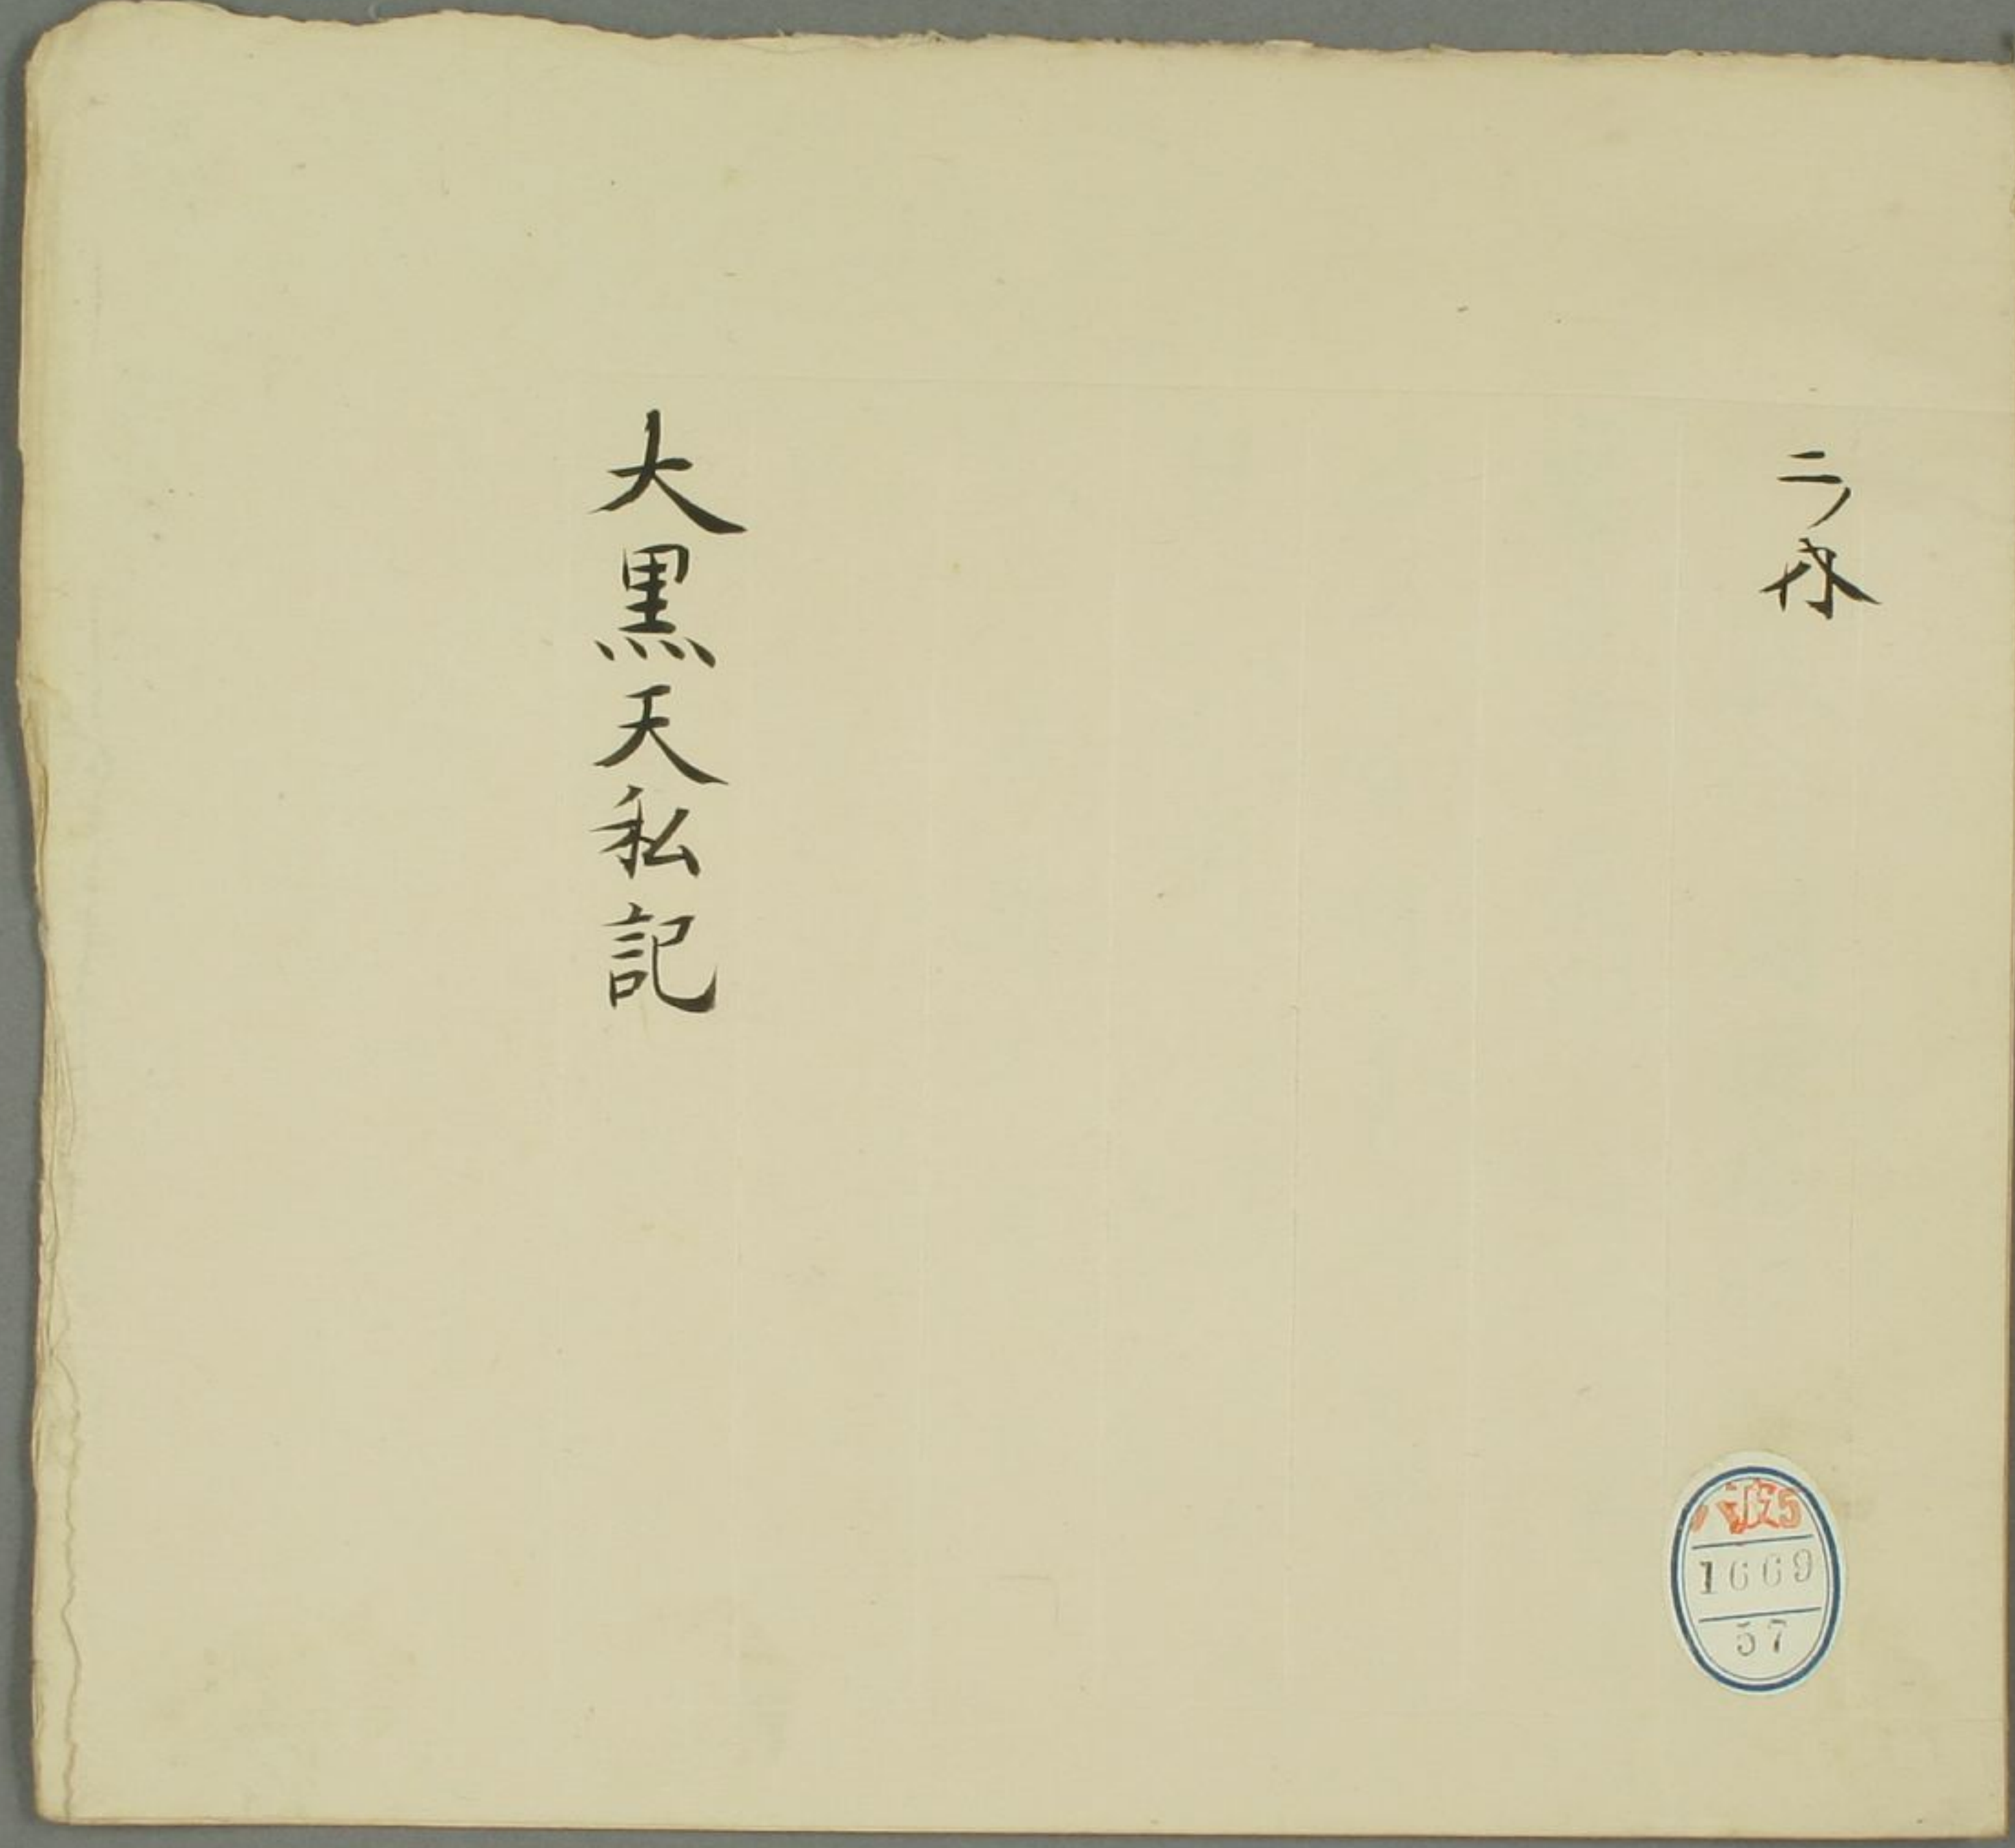 二ノ
大黒天私記
1669
57